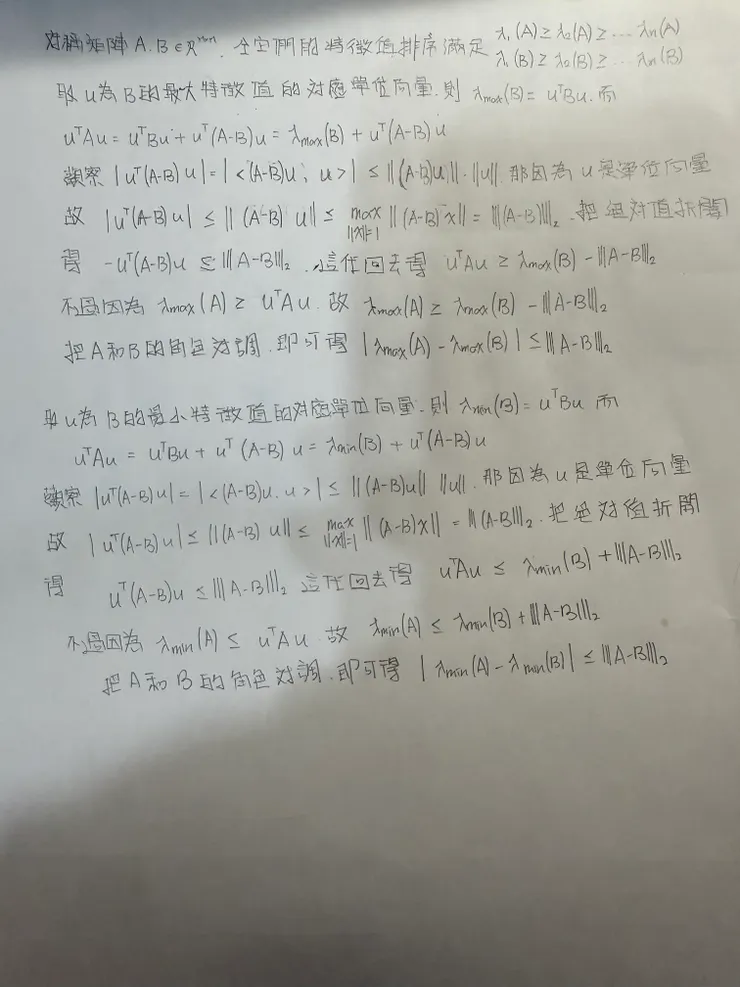 對稱矩陣 A, B ∈ ℝⁿˣⁿ, 令它們的特徵值排序滿足 λ₁(A) ≥ λ₂(A) ≥ … λn(A)
λ₁(B) ≥ λ₂(B) ≥ … λn(B)
取 u 為 B 的最大特徵值的對應單位向量, 則 λmax(B) = uᵀBu. 而
uᵀAu = uᵀBu + uᵀ(A-B)u = λmax(B) + uᵀ(A-B)u
觀察 |uᵀ(A-B)u| = |<(A-B)u, u>| ≤ ||(A-B)u||·||u||. 那因為 u 是單位向量
故 |uᵀ(A-B)u| ≤ ||(A-B)u|| ≤ max ||x||=1 ||(A-B)x|| = |||(A-B)|||₂. 把絕對值拆開
得 -uᵀ(A-B)u ≤ |||A-B|||₂. 這代回去得 uᵀAu ≥ λmax(B) - |||A-B|||₂
不過因為 λmax(A) ≥ uᵀAu. 故 λmax(A) ≥ λmax(B) - |||A-B|||₂
把 A 和 B 的角色對調. 即可得 |λmax(A) - λmax(B)| ≤ |||A-B|||₂
取 u 為 B 的最小特徵值的對應單位向量. 則 λmin(B) = uᵀBu 而
uᵀAu = uᵀBu + uᵀ(A-B)u = λmin(B) + uᵀ(A-B)u
觀察 |uᵀ(A-B)u| = |<(A-B)u, u>| ≤ ||(A-B)u|| ||u||. 那因為 u 是單位向量
故 |uᵀ(A-B)u| ≤ ||(A-B)u|| ≤ max ||x||=1 ||(A-B)x|| = |||(A-B)|||₂. 把絕對值拆開
得 uᵀ(A-B)u ≤ |||A-B|||₂ 這代回去得 uᵀAu ≤ λmin(B) + |||A-B|||₂
不過因為 λmin(A) ≤ uᵀAu. 故 λmin(A) ≤ λmin(B) + |||A-B|||₂
把 A 和 B 的角色對調. 即可得 |λmin(A) - λmin(B)| ≤ |||A-B|||₂